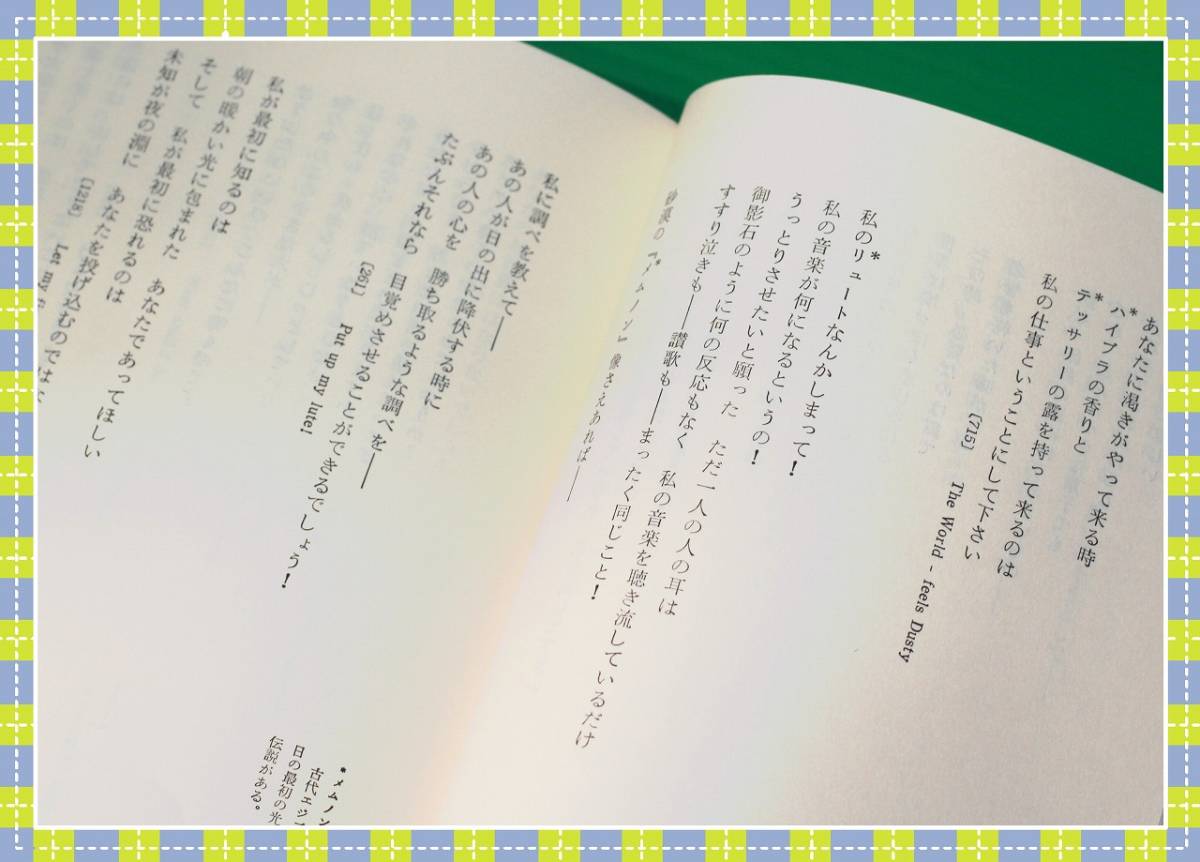 あなたに渇きがやって来る時
*ハイブラの香りと
*テッサリーの露を持って来るのは
私の仕事ということにして下さい
〔715〕 The World - feels Dusty
私の*リュートなんかしまって！
私の音楽が何になるというの！
うっとりさせたいと願った ただ一人の人の耳は
御影石のように何の反応もなく 私の音楽を聴き流しているだけ
すすり泣きも——讃歌も——まったく同じこと！
砂漠の『*メムノン』像さえあれば——
私に調べを教えて——
あの人が日の出に降伏する時に
あの人の心を 勝ち取るような調べを——
たぶんそれなら 目覚めさせることができるでしょう！
〔261〕 Put up my lute!
私が最初に知るのは
朝の暖かい光に包まれた あなたであってほしい
そして 私が最初に恐れるのは
未知が夜の淵に あなたを投げ込むのでは
〔1218〕 Let my
*メムノン
古代エジ
日の最初の光
伝説がある。